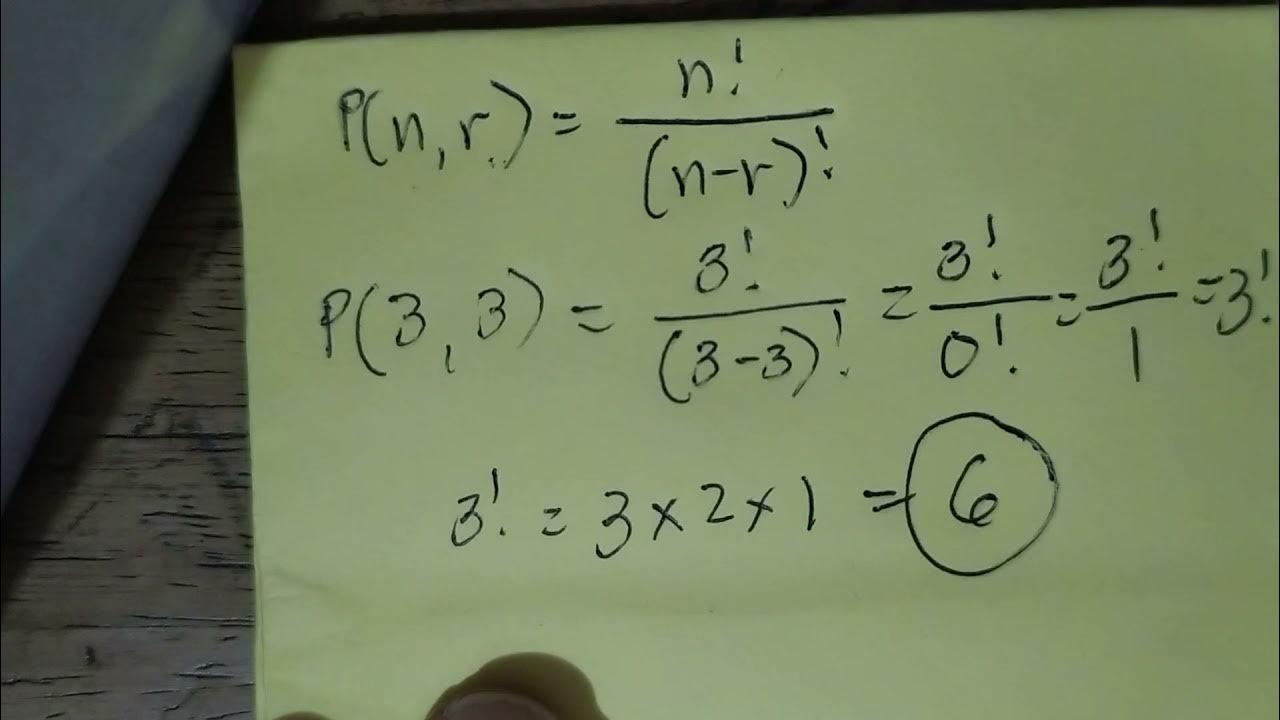 P(n,r) = n!/(n-r)!
P(3,3) = 3!/(3-3)! = 3!/0! = 3!/1 = 3!
3! = 3 x 2 x 1 = 6